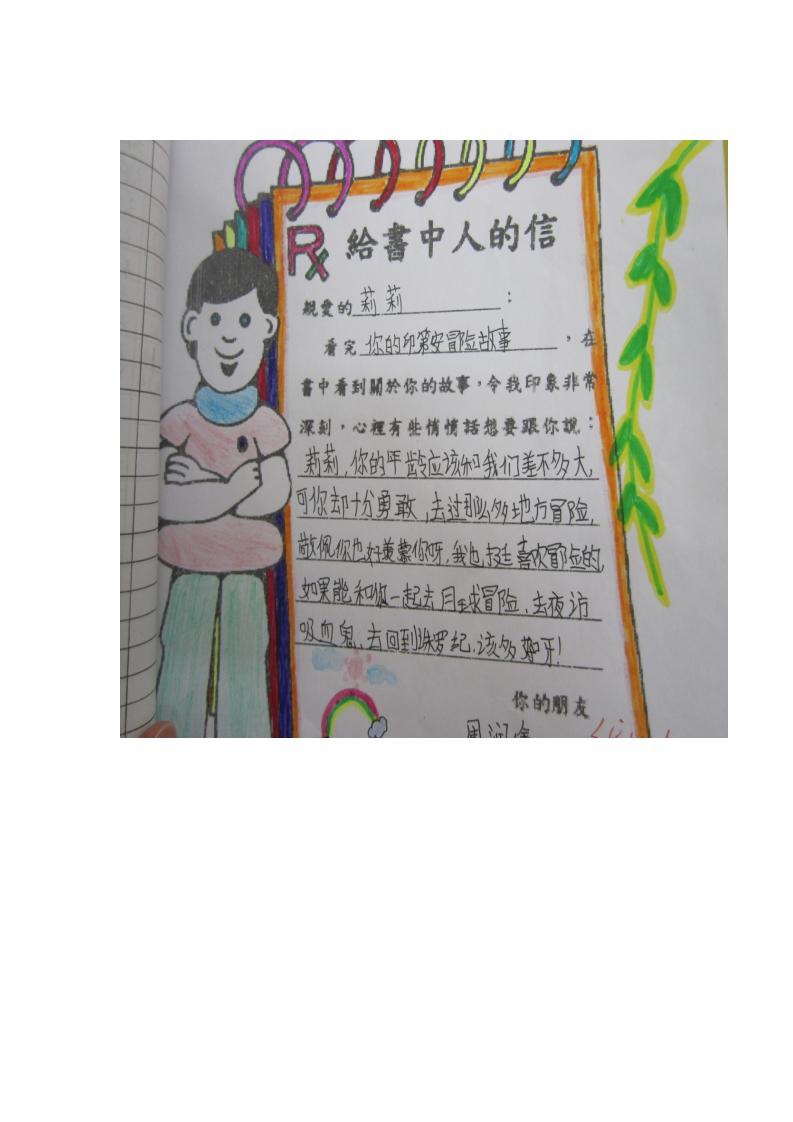 Rx 給書中人的信
親愛的 莉莉 :
看完 你的印第安冒险故事 ，在
書中看到關於你的故事，令我印象非常
深刻，心裡有些悄悄話想要跟你說：
莉莉，你的年龄应该和我们差不多大，
可你却十分勇敢，去过那么多地方冒险，
敬佩你也好羡慕你呀，我也挺喜欢冒险的，
如果能和你一起去月球冒险、去夜访
吸血鬼、去回到侏罗纪，该多好呀！
你的朋友
周润